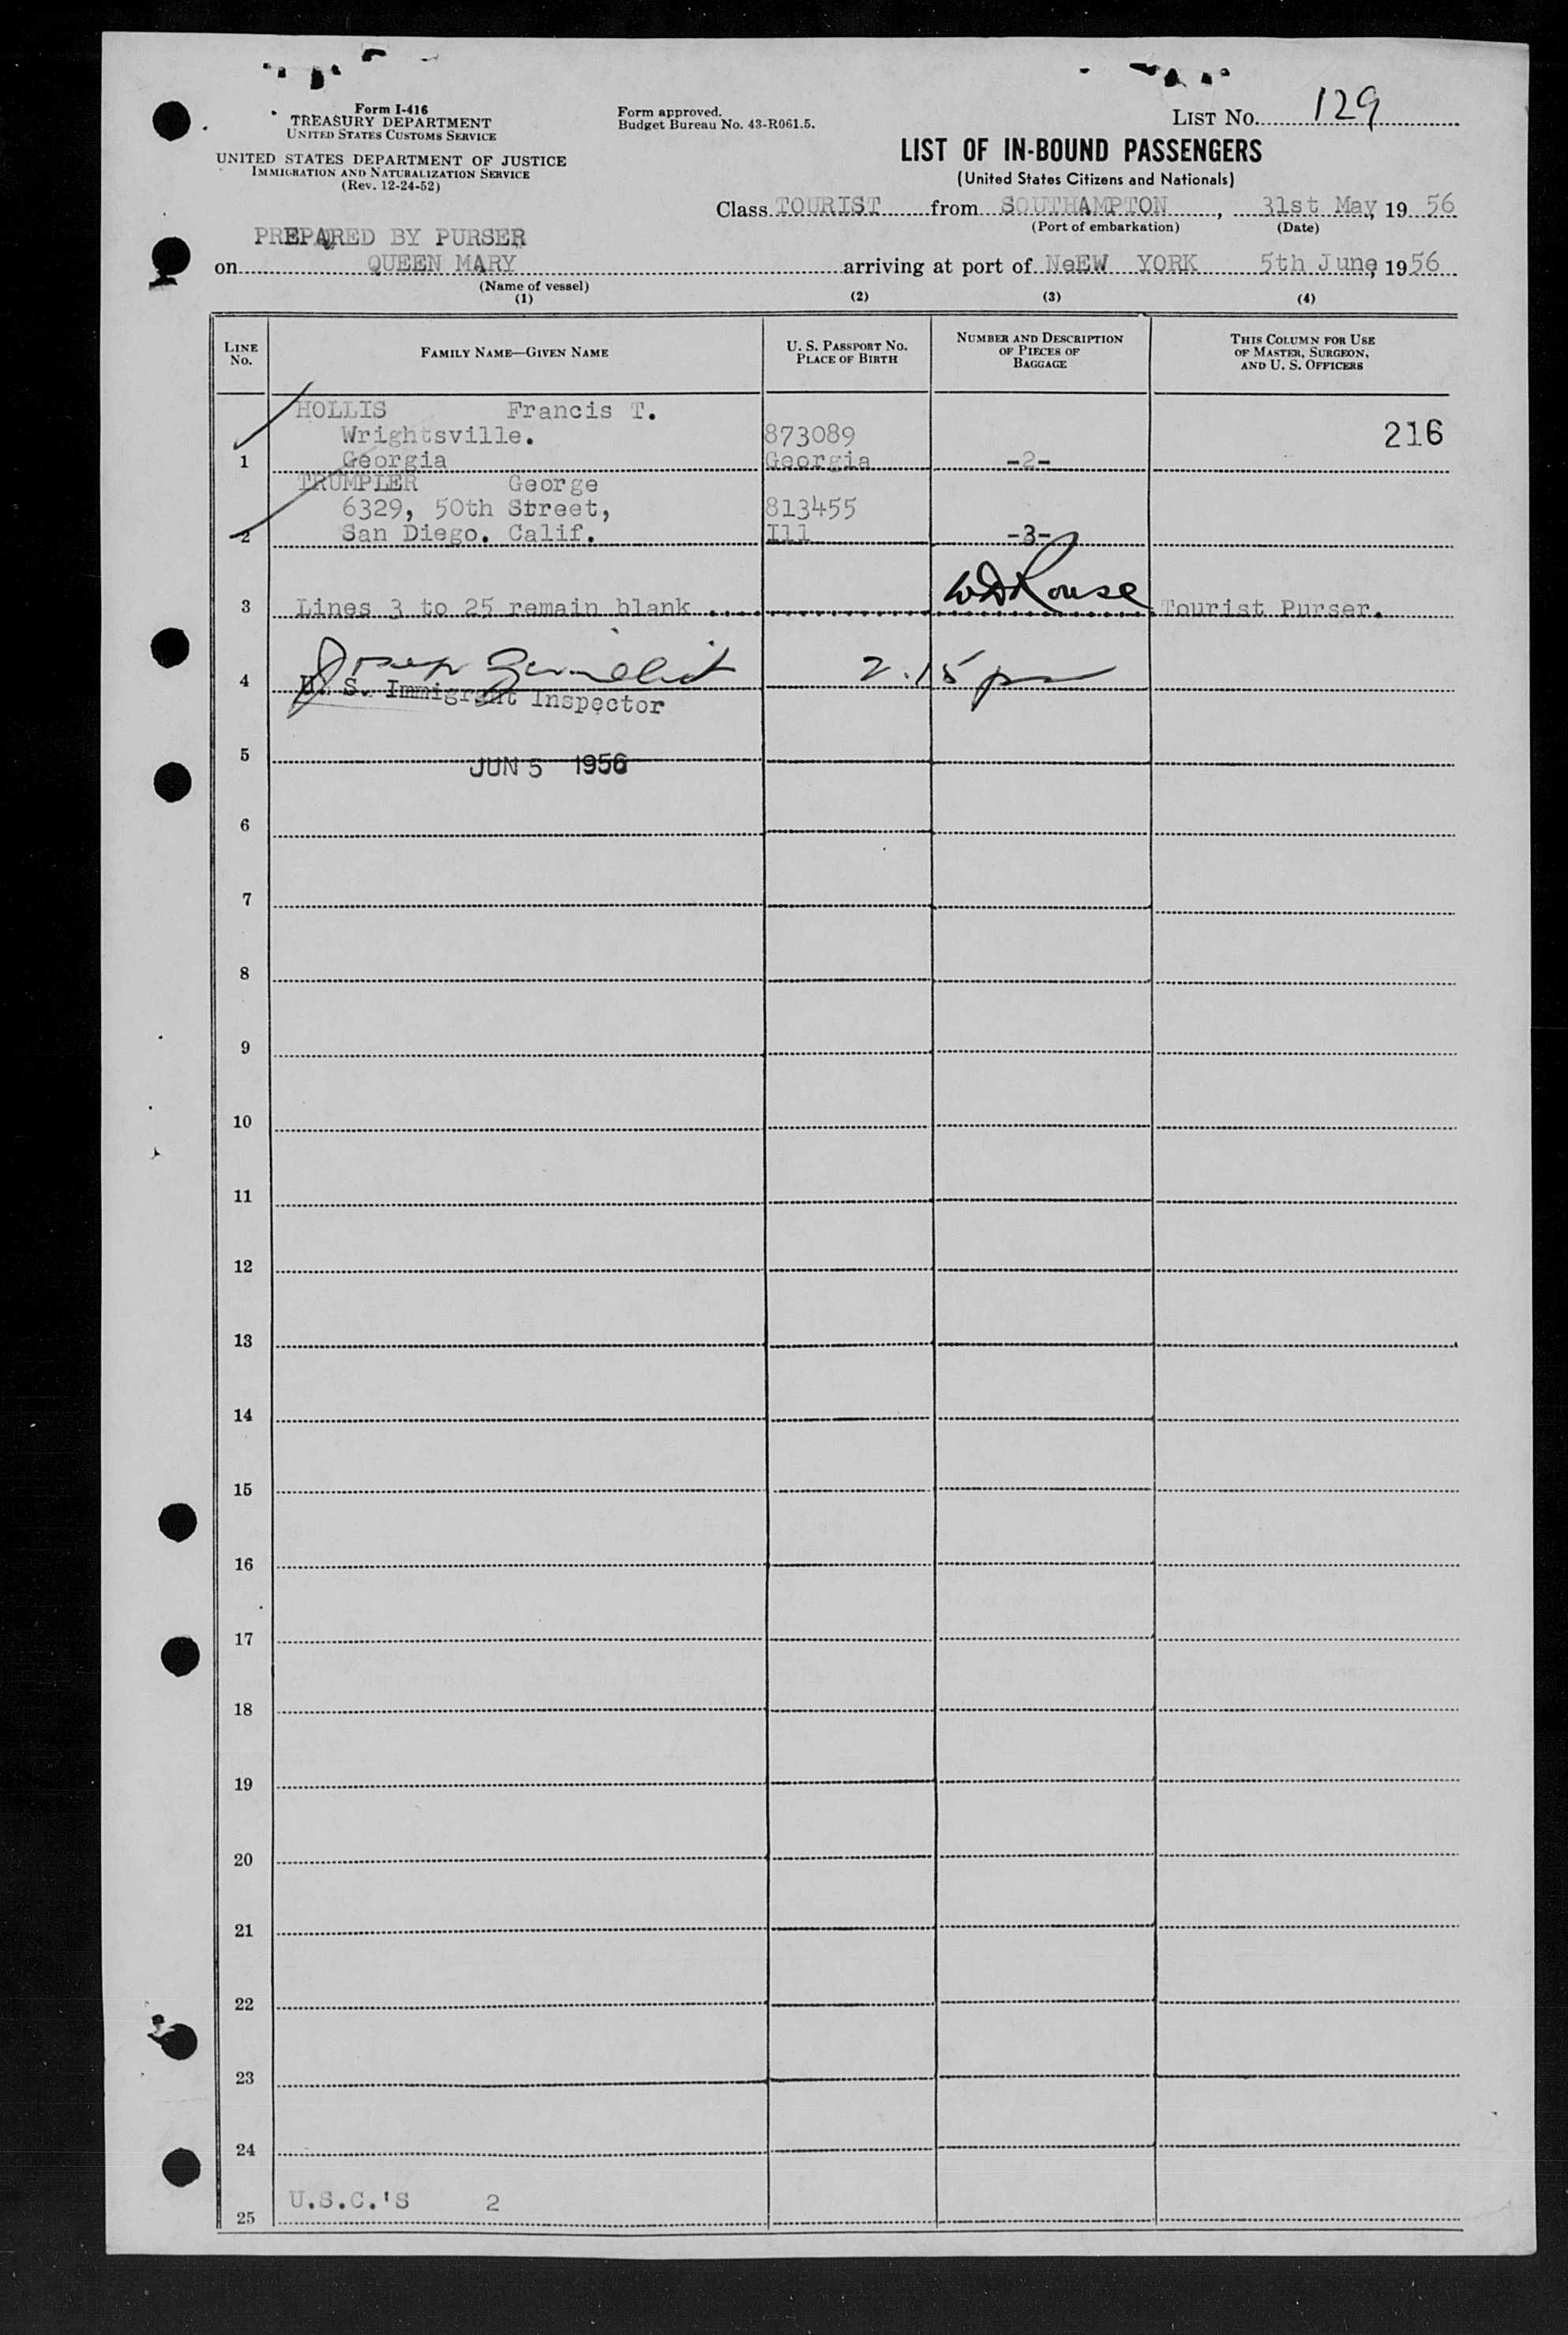 Form I-416
TREASURY DEPARTMENT
UNITED STATES CUSTOMS SERVICE
UNITED STATES DEPARTMENT OF JUSTICE
IMMIGRATION AND NATURALIZATION SERVICE
(Rev. 12-24-52)
Form approved.
Budget Bureau No. 43-R061.5.
LIST NO. 129
LIST OF IN-BOUND PASSENGERS
(United States Citizens and Nationals)
Class TOURIST from SOUTHAMPTON, 31st May, 1956
(Port of embarkation) (Date)
PREPARED BY PURSER
on QUEEN MARY arriving at port of NeEW YORK 5th June, 1956
(Name of vessel)
(1) (2) (3) (4)
LINE NO. FAMILY NAME—GIVEN NAME U. S. PASSPORT NO. PLACE OF BIRTH NUMBER AND DESCRIPTION OF PIECES OF BAGGAGE THIS COLUMN FOR USE OF MASTER, SURGEON, AND U. S. OFFICERS
HOLLIS Francis T.
Wrightsville. 873089 216
1 Georgia Georgia -2-
TRUMPLER George
6329, 50th Street, 813455
2 San Diego. Calif. Ill -3-
3 Lines 3 to 25 remain blank WD Rouse Tourist Purser.
4 Joseph 2.15 pm
U. S. Immigrant Inspector
5 JUN 5 1956
6
7
8
9
10
11
12
13
14
15
16
17
18
19
20
21
22
23
24
25 U.S.C.'S 2